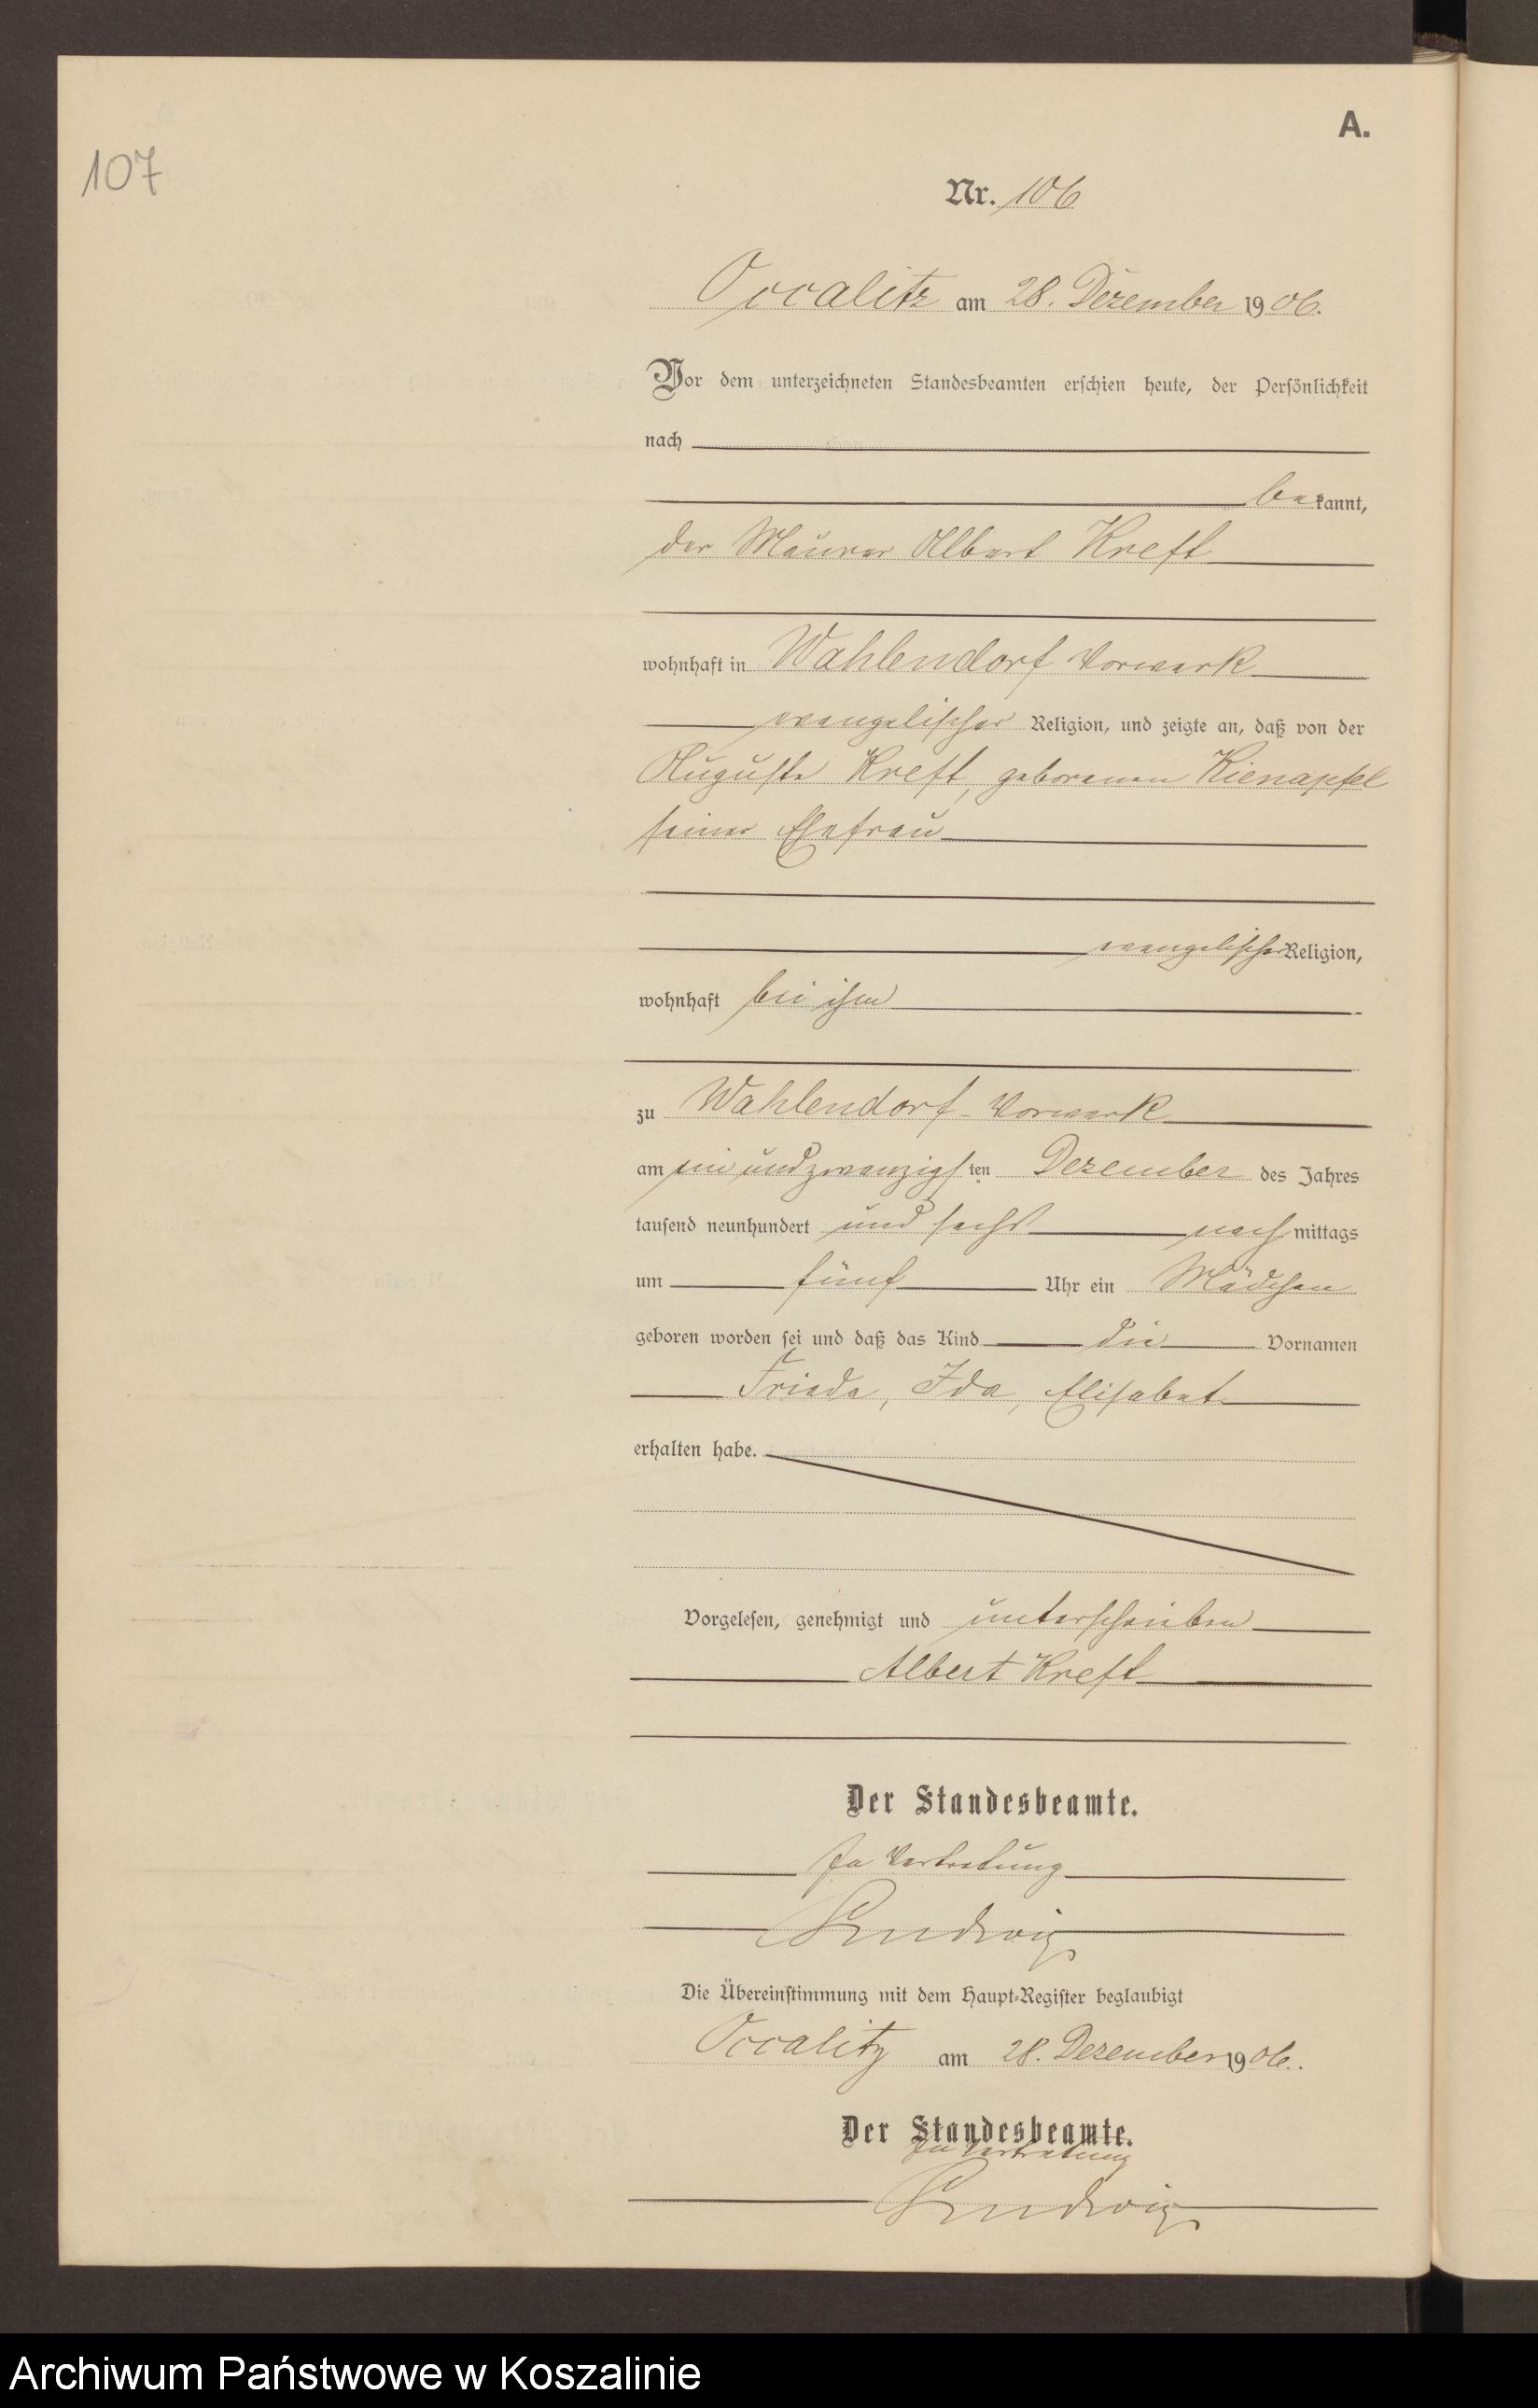 A.
107
Nr. 106
Occalitz am 28. Dezember 1906.
Vor dem unterzeichneten Standesbeamten erschien heute, der Persönlichkeit
nach
bekannt,
der Maurer Albert Kreft
wohnhaft in Wahlendorf Vorwerk
evangelischer Religion, und zeigte an, daß von der
Auguste Kreft, geborenen Kienapfel
seiner Ehefrau
evangelischer Religion,
wohnhaft bei ihm
zu Wahlendorf-Vorwerk
am ein und zwanzigsten Dezember des Jahres
tausend neunhundert und sechs nachmittags
um fünf Uhr ein Mädchen
geboren worden sei und daß das Kind die Vornamen
Frieda, Ida, Elisabet
erhalten habe.
Vorgelesen, genehmigt und unterschrieben
Albert Kreft
Der Standesbeamte.
In Vertretung
Die Übereinstimmung mit dem Haupt-Register beglaubigt
Occalitz am 28. Dezember 1906.
Der Standesbeamte.
In Vertretung
Archiwum Państwowe w Koszalinie